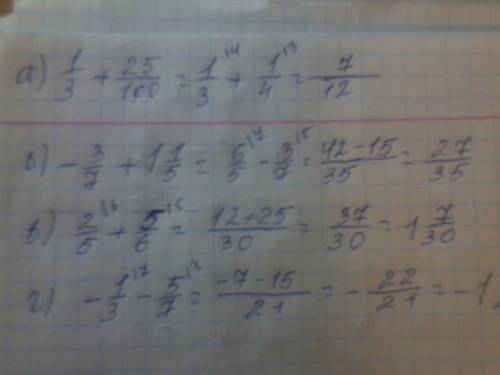 а) 1/3 + 25/100 = 1/3^{\4} + 1/4^{\3} = 7/12
б) - 3/7 + 1 1/5 = 6/5^{\7} - 3/7^{\5} = (42-15)/35 = 27/35
в) 2/5^{\6} + 5/6^{\5} = (12+25)/30 = 37/30 = 1 7/30
г) - 1/3^{\7} - 5/7^{\3} = (-7-15)/21 = - 22/21 = -1